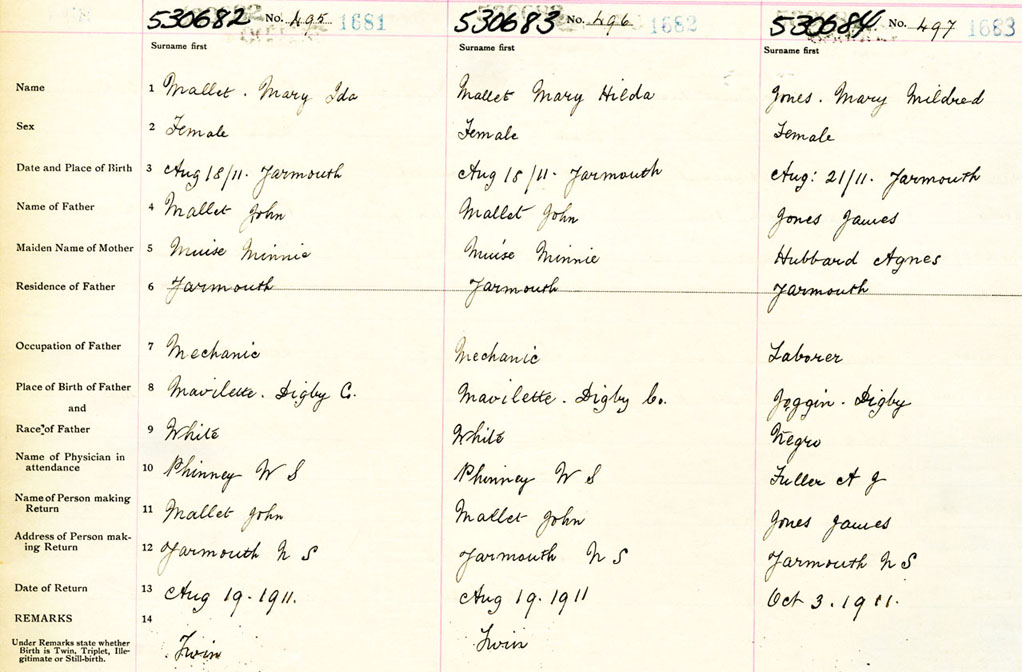 530682 No. 495 1681 530683 No. 496 1682 530684 No. 497 1683
Surname first Surname first Surname first
Name 1 Mallet. Mary Ida Mallet Mary Hilda Jones. Mary Mildred
Sex 2 Female Female Female
Date and Place of Birth 3 Aug 18/11. Yarmouth Aug 18/11. Yarmouth Aug: 21/11. Yarmouth
Name of Father 4 Mallet John Mallet John Jones James
Maiden Name of Mother 5 Muise Minnie Muise Minnie Hubbard Agnes
Residence of Father 6 Yarmouth Yarmouth Yarmouth
Occupation of Father 7 Mechanic Mechanic Laborer
Place of Birth of Father 8 Mavilette. Digby C. Mavilette. Digby Co. Joggin. Digby
and
Race of Father 9 White White Negro
Name of Physician in
attendance 10 Phinney W S Phinney W S Fuller A J
Name of Person making
Return 11 Mallet John Mallet John Jones James
Address of Person mak-
ing Return 12 Yarmouth N S Yarmouth N S Yarmouth N S
Date of Return 13 Aug 19. 1911. Aug 19. 1911 Oct 3. 1911.
REMARKS 14
Under Remarks state whether
Birth is Twin, Triplet, Ille-
gitimate or Still-birth. Twin Twin